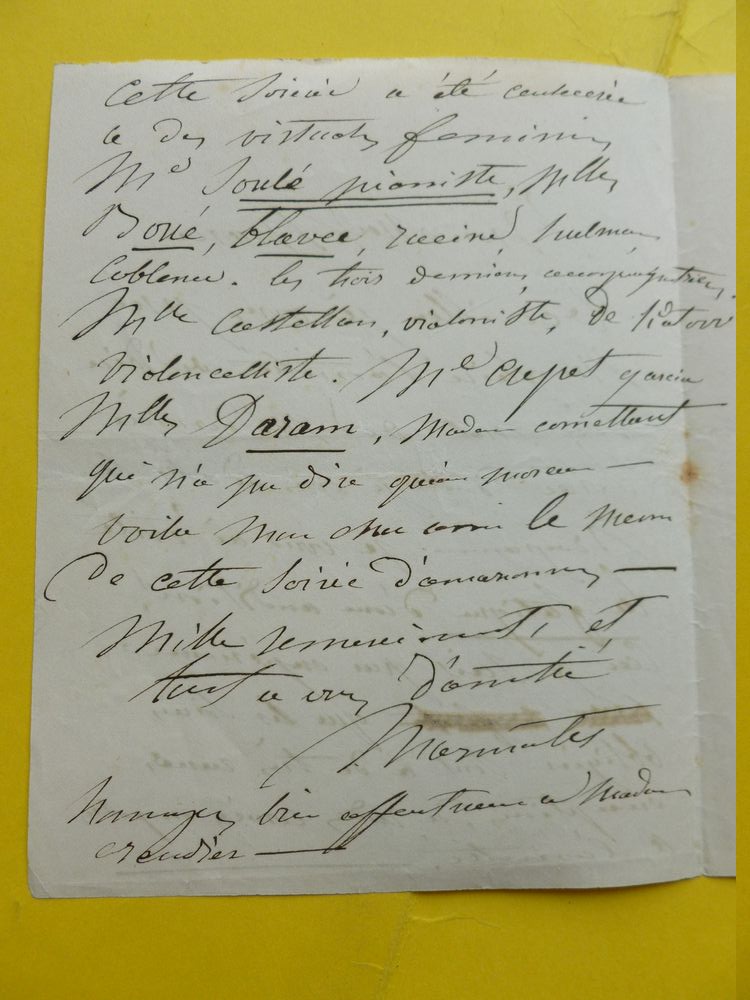 cette soirée a été consacrée
a des virtuoses feminins
Me Soulé pianiste, Mlles
Boué, blavee, racine
Coblence. les trois dernières accompagnatrices.
Mlle Castellan, violoniste, De
violoncelliste. Me crepet garcia
Mlles Daram, Madame comettant
qui n'a pu dire qu'un morceau —
voila mon cher ami le menu
De cette soirée d'amazones —
Mille remerciments, et
tout a vous d'amitié
Marmontel
hommages bien affectueux a Madame